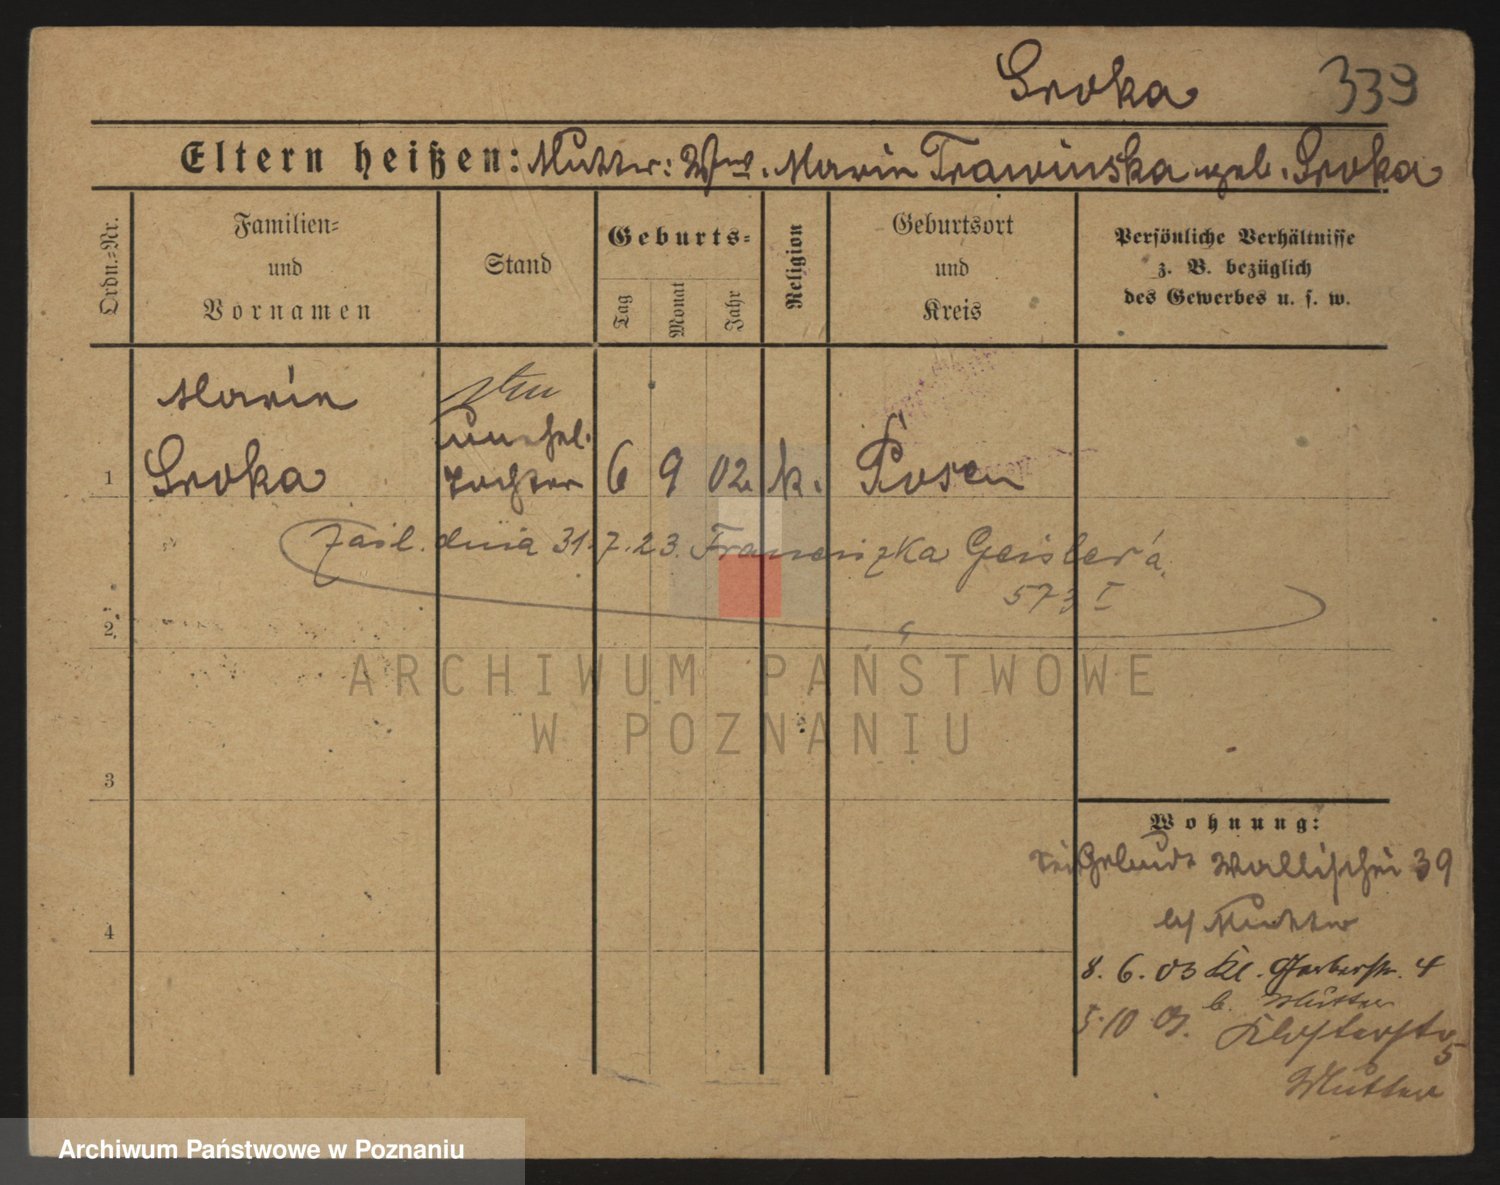 Sroka 339
Eltern heißen: Mutter: Ww. Marie Trawinska geb. Sroka
Ordn.-Nr.
Familien-
und
Vornamen
Stand
Geburts-
Tag
Monat
Jahr
Religion
Geburtsort
und
Kreis
Persönliche Verhältnisse
z. B. bezüglich
des Gewerbes u. s. w.
Marie
unehel.
1 Sroka Tochter 6 9 02. k. Posen
zaśl. dnia 31.7.23. Franciszka Geisler'a
573 I
2
ARCHIWUM PAŃSTWOWE
W POZNANIU
3
Wohnung:
Wallischei 39
4
b/ Mutter
8. 6. 03 Kl. Gerberstr. 4
b. Mutter
5. 10 03. Klosterstr
5
Mutter
Archiwum Państwowe w Poznaniu